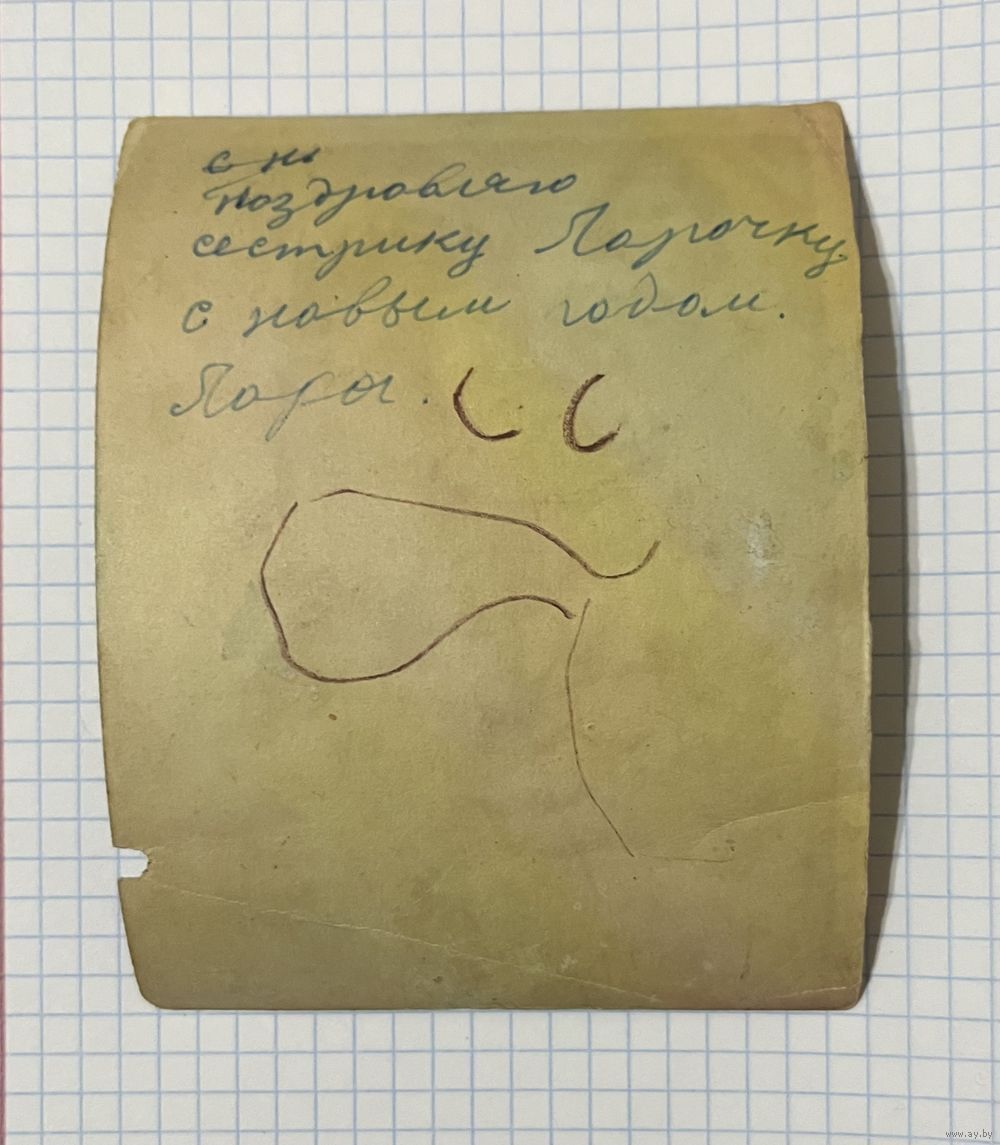 с но
Поздровляю
сестрику Ларочку
с новым годом.
Лара.
www.ay.by